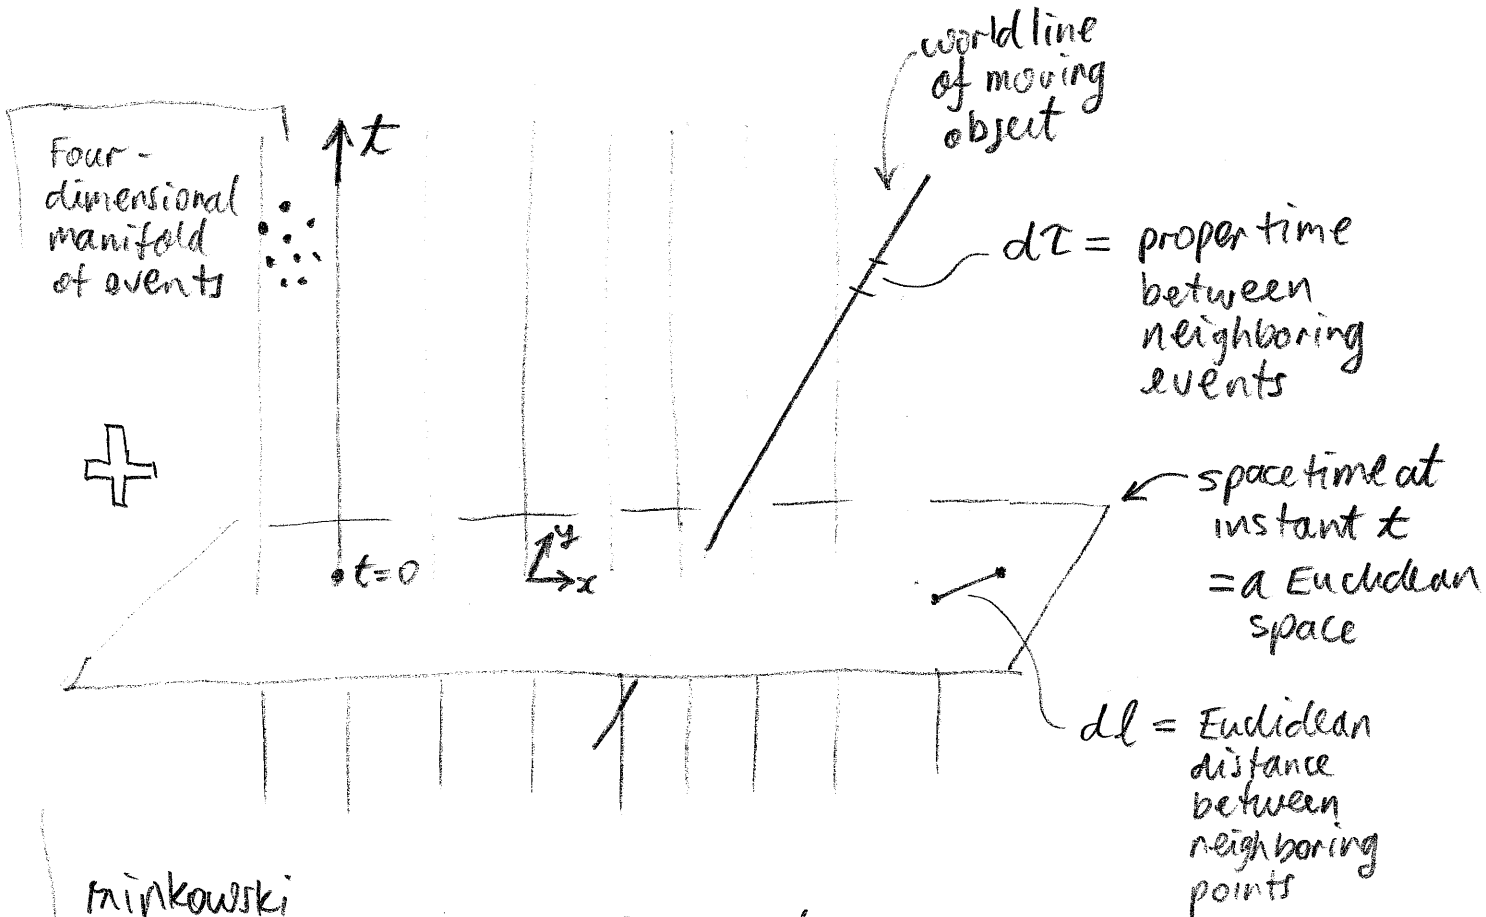 worldline
of moving
object
t
Four-
dimensional
manifold
of events
dτ = proper time
between
neighboring
events
spacetime at
instant t
= a Euclidean
space
y
t=0
x
dl = Euclidean
distance
between
neighboring
points
Minkowski